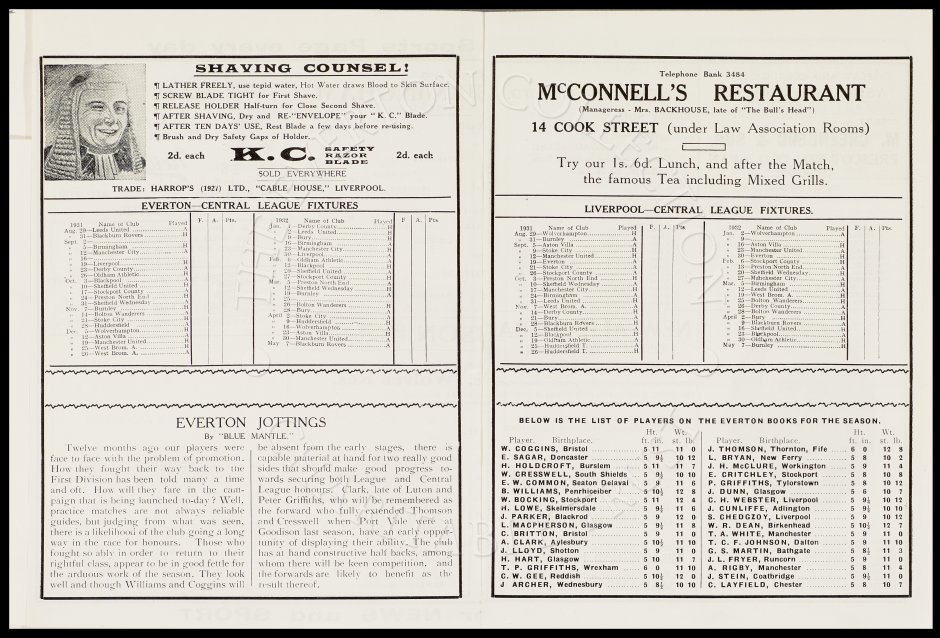 SHAVING COUNSEL!
¶ LATHER FREELY, use tepid water, Hot Water draws Blood to Skin Surface.
¶ SCREW BLADE TIGHT for First Shave.
¶ RELEASE HOLDER Half-turn for Close Second Shave.
¶ AFTER SHAVING, Dry and RE-"ENVELOPE" your "K. C." Blade.
¶ AFTER TEN DAYS' USE, Rest Blade a few days before re-using.
¶ Brush and Dry Safety Gaps of Holder.
2d. each K.C. SAFETY RAZOR BLADE 2d. each
SOLD EVERYWHERE
TRADE: HARROP'S (1927) LTD., "CABLE HOUSE," LIVERPOOL.
EVERTON—CENTRAL LEAGUE FIXTURES
1931 Name of Club Played F. A. Pts.
Aug. 29—Leeds United H
„ 31—Blackburn Rovers H
Sept. 2—
„ 5—Birmingham
„ 12—Manchester City
„ 16—
„ 19—Liverpool
„ 23—Derby County
„ 26—Oldham Athletic
Oct. 3—Blackpool
„ 10—Sheffield United
„ 17—Stockport County
„ 24—Preston North End
„ 31—Sheffield Wednesday
Nov. 7—Burnley
„ 14—Bolton Wanderers
„ 21—Stoke City
„ 28—Huddersfield
Dec. 5—Wolverhampton
„ 12—Aston Villa
„ 19—Manchester United
„ 25—West Brom. A.
„ 26—West Brom. A.
1932 Name of Club Played F A. Pts
Jan. 1—Derby County
„ 2—Leeds United
„ 9—Bury
„ 16—Birmingham
„ 23—Manchester City
„ 30—Liverpool
Feb. 6—Oldham Athletic
„ 13—Blackpool
„ 20—Sheffield United
„ 27—Stockport County
Mar. 5—Preston North End
„ 12—Sheffield Wednesday
„ 19—Burnley
„ 25—
„ 26—Bolton Wanderers
„ 28—Bury
April 2—Stoke City
„ 9—Huddersfield
„ 16—Wolverhampton
„ 23—Aston Villa
„ 30—Manchester United
May 7—Blackburn Rovers
EVERTON JOTTINGS
By "BLUE MANTLE."
Twelve months ago our players were
face to face with the problem of promotion.
How they fought their way back to the
First Division has been told many a time
and oft. How will they fare in the cam-
paign that is being launched to-day? Well,
practice matches are not always reliable
guides, but judging from what was seen,
there is a likelihood of the club going a long
way in the race for honours. Those who
fought so ably in order to return to their
rightful class, appear to be in good fettle for
the arduous work of the season. They look
well and though Williams and Coggins will
be absent from the early stages, there is
capable material at hand for two really good
sides that should make good progress to-
wards securing both League and Central
League honours. Clark, late of Luton and
Peter Griffiths, who will be remembered as
the forward who fully extended Thomson
and Cresswell when Port Vale were at
Goodison last season, have an early oppor-
tunity of displaying their ability. The club
has at hand constructive half backs, among
whom there will be keen competition, and
the forwards are likely to benefit as the
result thereof.
Telephone Bank 3484
McCONNELL'S RESTAURANT
(Manageress - Mrs. BACKHOUSE, late of "The Bull's Head")
14 COOK STREET (under Law Association Rooms)
Try our 1s. 6d. Lunch, and after the Match,
the famous Tea including Mixed Grills.
LIVERPOOL—CENTRAL LEAGUE FIXTURES.
1931 Name of Club Played F. A. Pts.
Aug. 29—Wolverhampton
„ 31—Burnley
Sept. 5—Aston Villa
„ 9—Stoke City
„ 12—Manchester United
„ 19—Everton
„ 21—Stoke City
„ 26—Stockport County
Oct. 3—Preston North End
„ 10—Sheffield Wednesday
„ 17—Manchester City
„ 24—Birmingham
„ 31—Leeds United
Nov. 7—West Brom. A.
„ 14—Derby County
„ 21—Bury
„ 28—Blackburn Rovers
Dec. 5—Sheffield United
„ 12—Blackpool
„ 19—Oldham Athletic
„ 25—Huddersfield T.
„ 26—Huddersfield T.
1932 Name of Club Played F. A. Pts
Jan. 2—Wolverhampton
„ 16—Aston Villa
„ 23—Manchester United
„ 30—Everton
Feb. 6—Stockport County
„ Preston North End
„ 20—Sheffield Wednesday
„ 27—Manchester City
Mar. 5—Birmingham
„ 12—Leeds United
„ 19—West Brom. A.
„ 25—Bolton Wanderers
„ 26—Derby County
„ 28—Bolton Wanderers
April 2—Bury
„ 9—Blackburn Rovers
„ 16—Sheffield United
„ 23—Blackpool
„ 30—Oldham Athletic
May 7—Burnley
BELOW IS THE LIST OF PLAYERS ON THE EVERTON BOOKS FOR THE SEASON.
Player. Birthplace. Ht. ft. in. Wt. st. lb.
W. COGGINS, Bristol 5 11 11 0
E. SAGAR, Doncaster 5 9½ 10 12
H. HOLDCROFT, Burslem 5 11 11 7
W. CRESSWELL, South Shields 5 9½ 10 10
E. W. COMMON, Seaton Delaval 5 8 11 6
B. WILLIAMS, Penrhiceiber 5 10½ 12 8
W. BOCKING, Stockport 5 11 12 4
H. LOWE, Skelmersdale 5 9½ 11 6
J. PARKER, Blackrod 5 9 12 0
L. MACPHERSON, Glasgow 5 9½ 11 8
C. BRITTON, Bristol 5 9 11 0
A. CLARK, Aylesbury 5 10½ 11 10
J. LLOYD, Shotton 5 9 11 0
H. HART, Glasgow 5 10 11 7
T. P. GRIFFITHS, Wrexham 6 0 11 10
C. W. GEE, Reddish 5 10½ 12 0
J ARCHER, Wednesbury 5 8½ 10 10
Player. Birthplace. Ht. ft. in. Wt. st. lb.
J. THOMSON, Thornton, Fife 6 0 12 8
L. BRYAN, New Ferry 5 8 10 2
J. H. McCLURE, Workington 5 9 11 4
E. CRITCHLEY, Stockport 5 8 10 8
P. GRIFFITHS, Tylorstown 5 8 10 12
J. DUNN, Glasgow 5 6 10 7
C. H. WEBSTER, Liverpool 5 9½ 10 12
J. CUNLIFFE, Adlington 5 9½ 10 10
S. CHEDGZOY, Liverpool 5 9 10 12
W. R. DEAN, Birkenhead 5 10½ 12 7
T. A. WHITE, Manchester 5 9 11 0
T. C. F. JOHNSON, Dalton 5 9 11 10
G. S. MARTIN, Bathgate 5 8½ 11 3
J. L. FRYER, Runcorn 5 9 11 0
A. RIGBY, Manchester 5 8 11 4
J. STEIN, Coatbridge 5 9½ 11 0
C. LAYFIELD, Chester 5 8 10 7